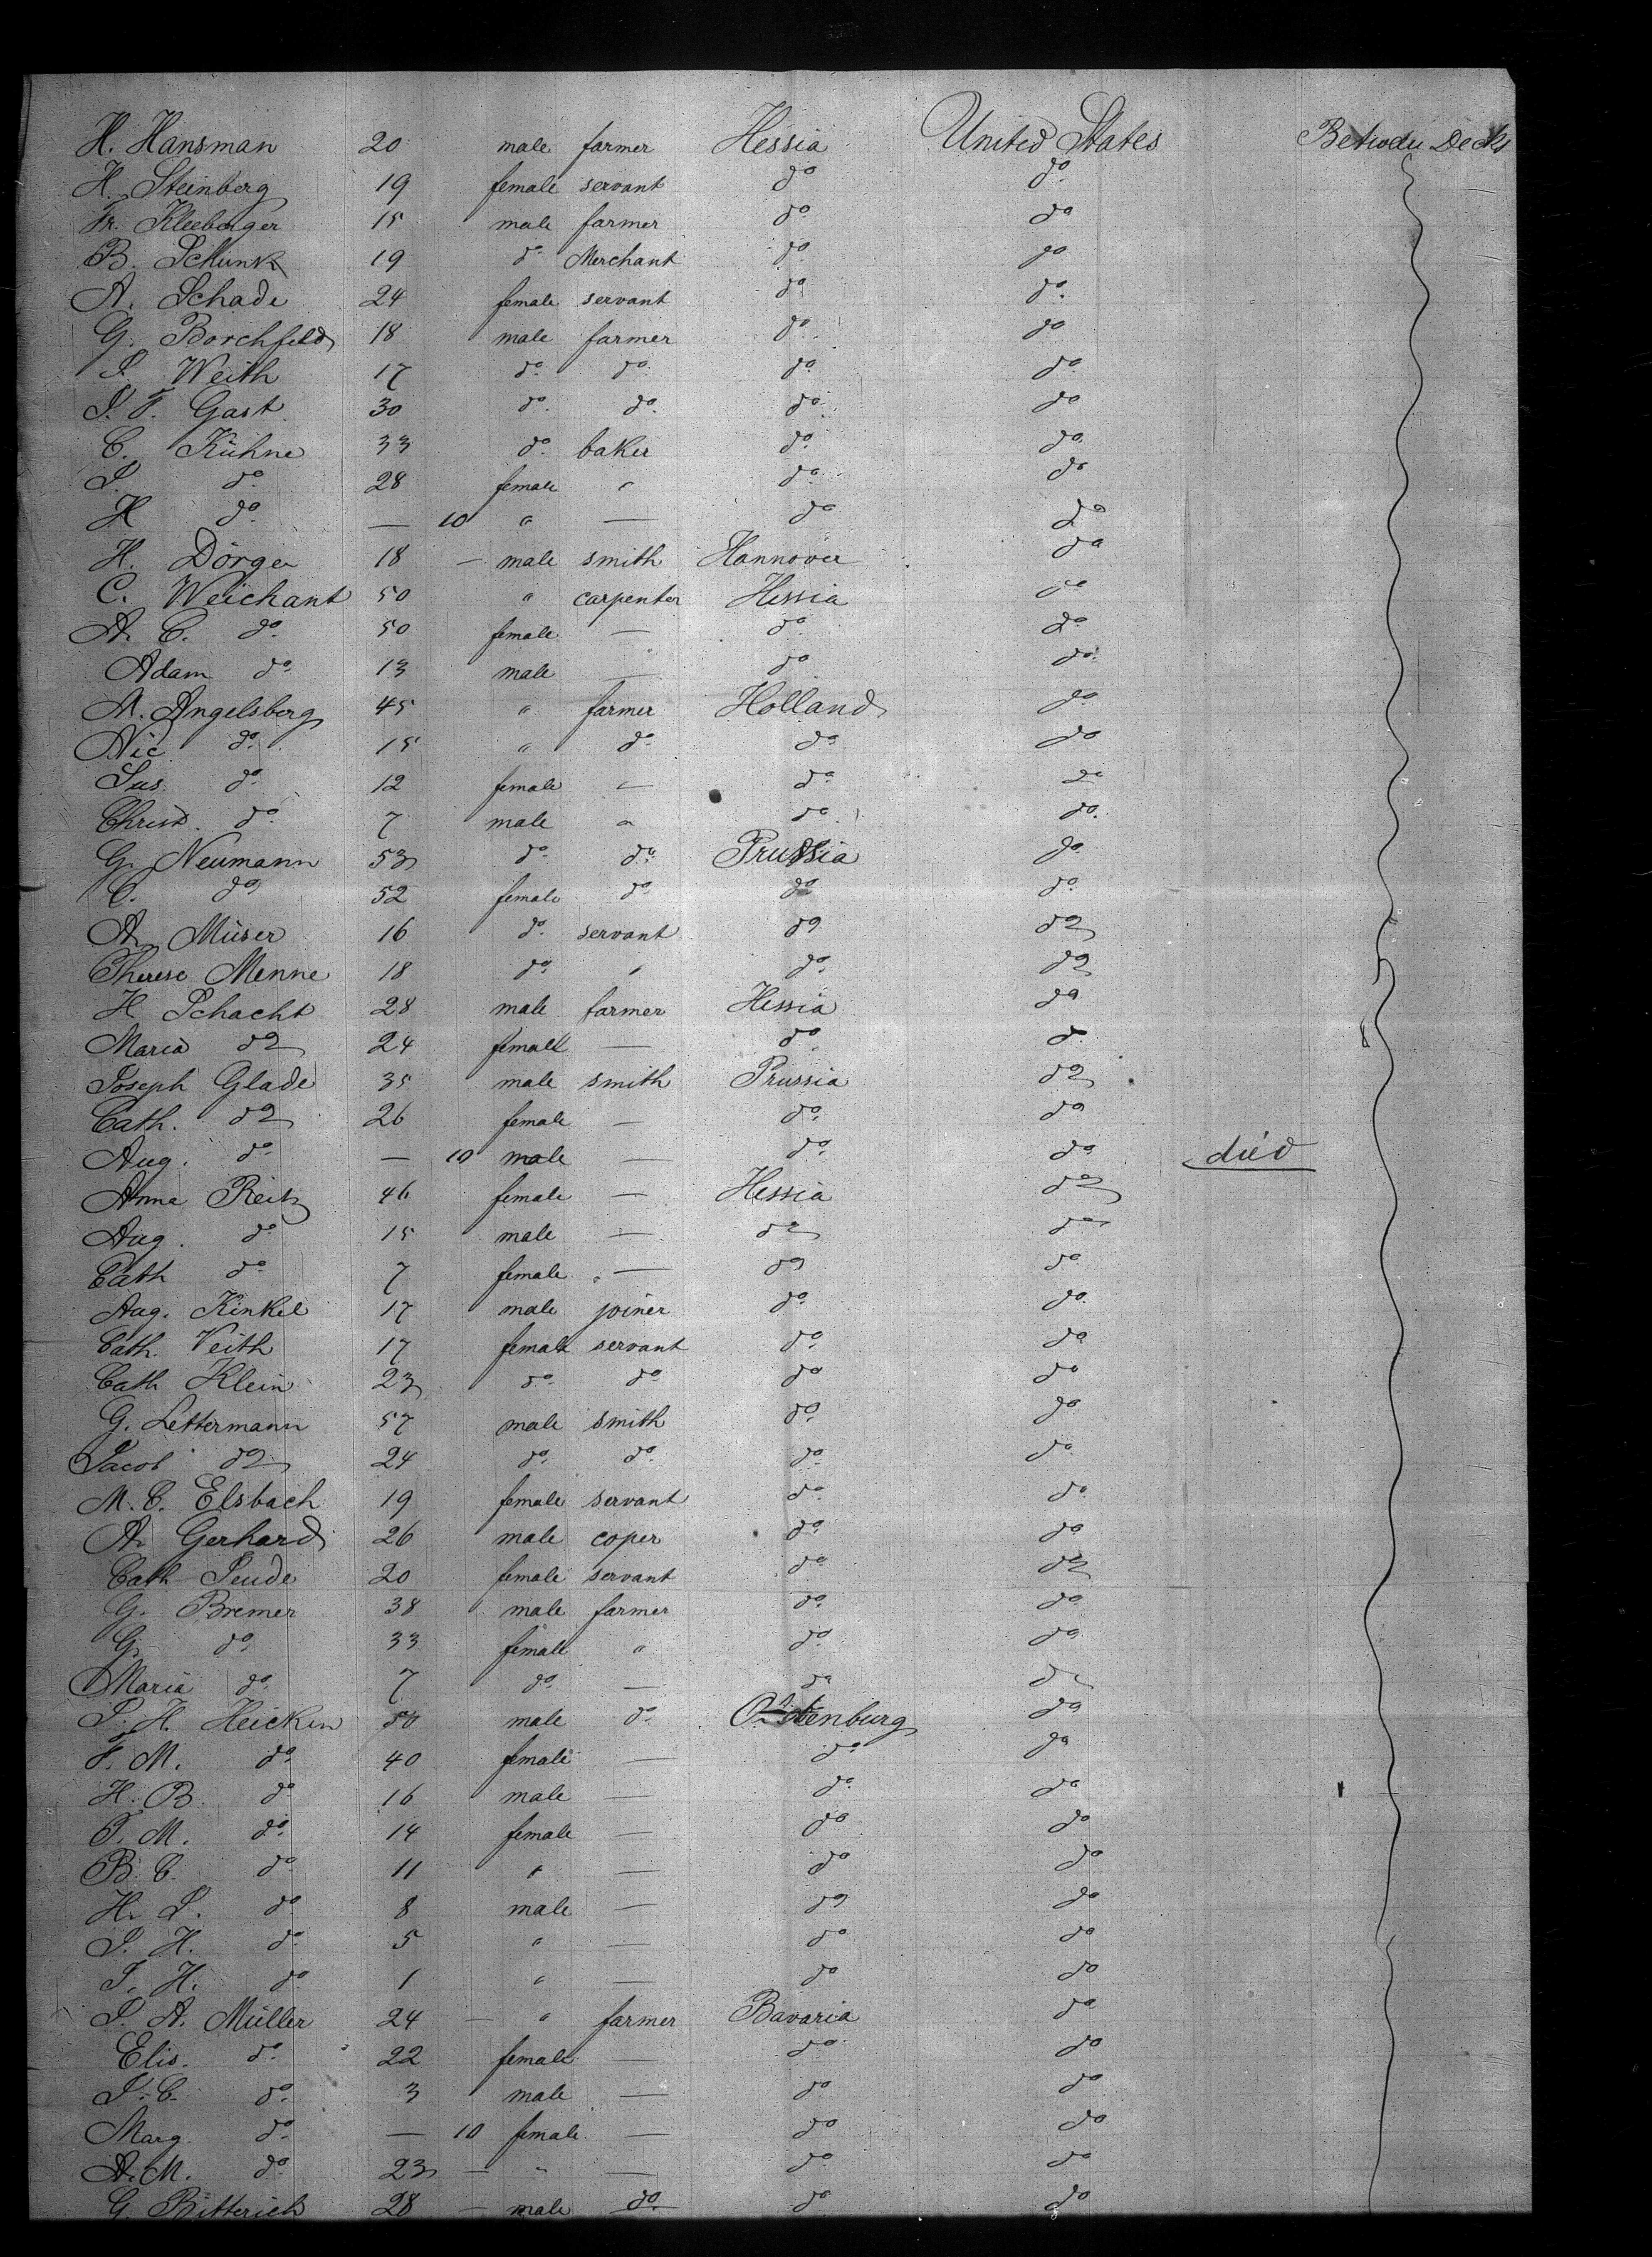 H. Hansman 20 male farmer Hessia United States Between Decks
H. Steinberg 19 female servant do do.
Fr. Kleeberger 15 male farmer do do
B. Schunk 19 do. Merchant do do
A. Schade 24 female servant do do.
G. Borchfeld 18 male farmer do. do
J. Weith 17 do. do. do. do
J. F. Gast 30 do. do. do. do
C. Kühne 33 do. baker do. do.
J. do. 28 female " do. do
H do. — 10 " — do do
H. Dörger 18 — male smith Hannover do
C. Weichant 50 " carpenter Hessia do
A. C. do. 50 female — do. do
Adam do. 13 male — do do.
M. Angelsberg 45 " farmer Holland do
Nic do. 15 " do. do. do
Sus. do. 12 female — do do
Christ. do. 7 male " do. do.
G. Neumann 53 do. do. Prussia do.
C. do 52 female do do do.
A. Müser 16 do. servant do do
Therese Menne 18 do. " do. do
H Schacht 28 male farmer Hessia do
Maria do 24 female — do do.
Joseph Glade 35 male smith Prussia do
Cath. do 26 female — do. do
Aug. do. — 10 male — do. do died
Anna Reitz 46 female — Hessia do
Aug. do 15 male — do do
Cath do 7 female — do do
Aug. Kinkel 17 male joiner do. do.
Cath. Veith 17 female servant do. do
Cath Klein 23 do. do. do do
G. Lettermann 57 male smith do. do
Jacob do 24 do. do. do. do.
M. C. Elsbach 19 female servant do. do.
A. Gerhard 26 male coper do. do
Cath Seude 20 female servant do do
G. Bremer 38 male farmer do. do
G. do. 33 female " do. do
Maria do 7 do. — do do
J. H. Heicken 50 male do. Oldenburg do
F. M. do. 40 female — do. do
H. B. do 16 male — do. do
T. M. do. 14 female — do do
B. C. do. 11 " — do do
H. J. do 8 male — do do
J. H. do. 5 " — do do
J. H. do 1 " — do do
J. A. Müller 24 — " farmer Bavaria do
Elis. do. 22 female — do do
J. C. do. 3 male — do do
Marg. do. — 10 female — do do
A. M. do. 23 — " — do. do
G. Bitterich 28 — male do. do do